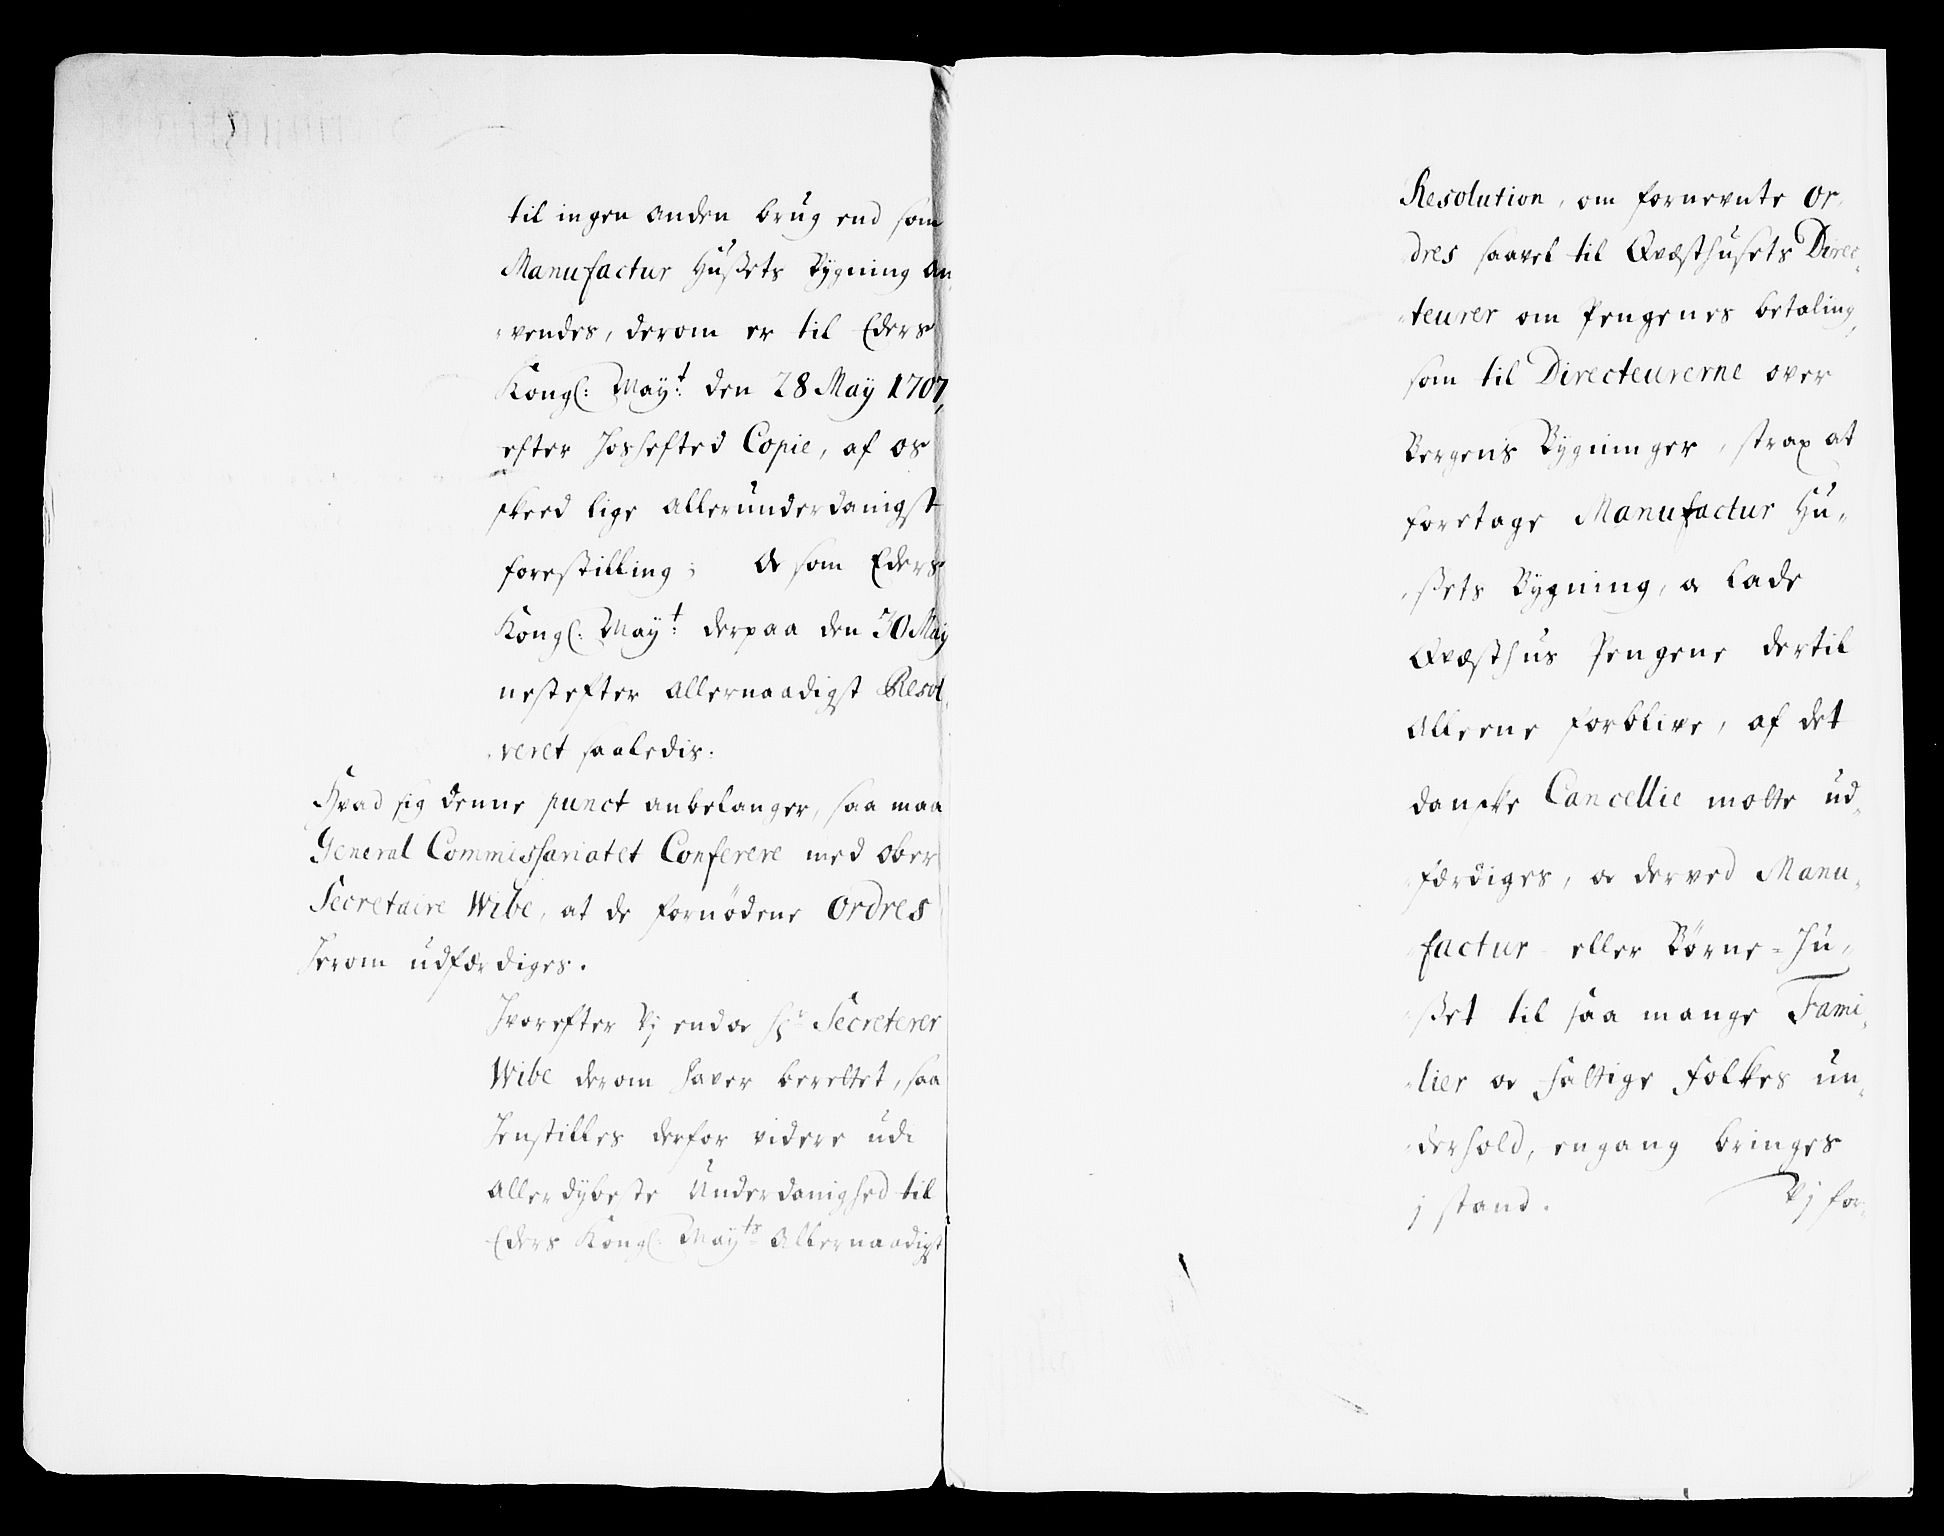 til ingen anden brug end som
Manufactur Hussets Bygning an,
vendes, derom er til Eders
Kongl: Mayt: den 28 May 1707,
efter Hoshefted Copie, af os
skeed lige allerunderdanigst
forestilling; & som Eders
Kongl: Mayt: derpaa den 30 May
nestefter allernaadigst Resol,
veret saaledis:
Hvad sig denne punct anbelanger, saa maa
General Commissariatet Conferere med ober
Secretaire Wibe, at de fornødene Ordres
herom udfærdiges.
Hvorefter Vj endog Hr Secreterer
Wibe derom haver berettet, saa
Henstilles derfor videre udi
allerdybeste Underdanighed til
Eders Kongl: Mayts Allernaadigst
Resolution, om fornevnte Or,
dres saavel til Qvæsthusets Direc,
teurer om Pengenes betaling,
som til Directeurerne over
Bergens Bygninger, strax at
foretage Manufactur Hu,
ssets Bygning, & lade
Qvæsthus Pengene dertil
alleene forblive, af det
danske Cancellie motte ud,
færdiges, & derved Manu,
factur eller Børne-Hu,
sset til saa mange Fami,
lier & fattige folkes un,
derhold, engang bringes
j stand. Vj for,